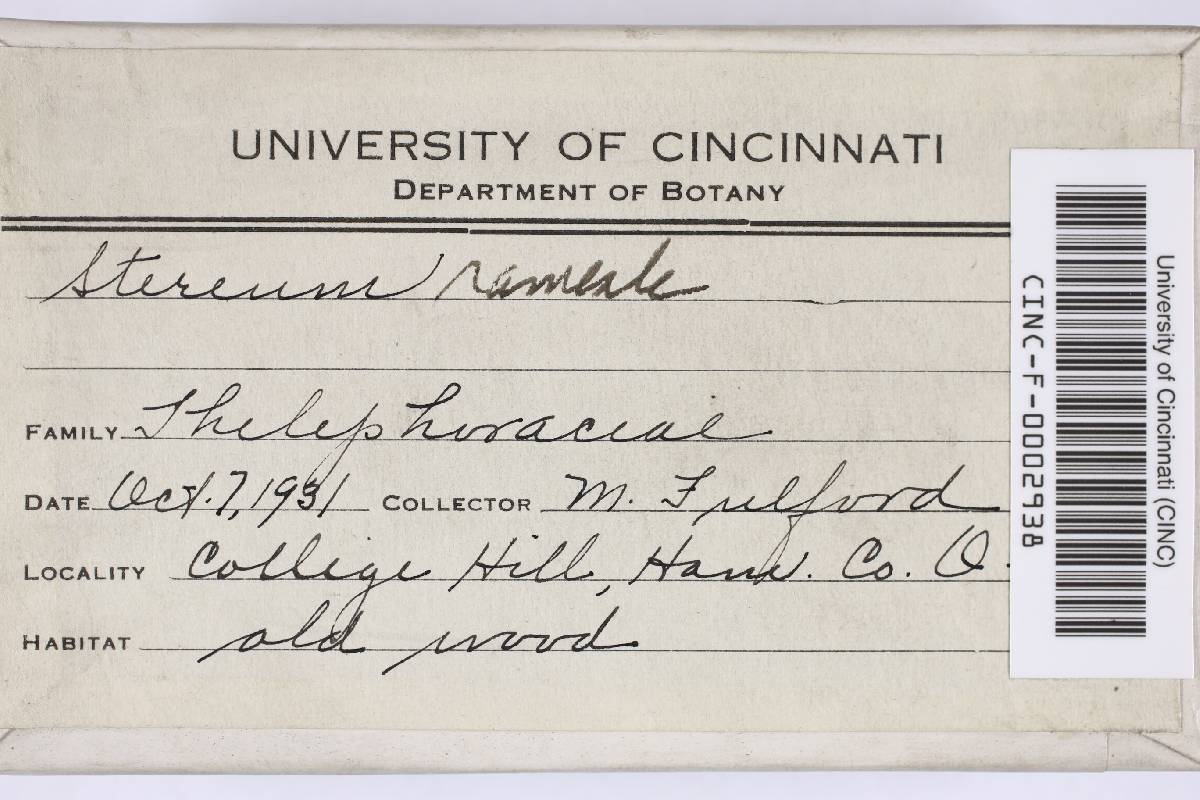 UNIVERSITY OF CINCINNATI
DEPARTMENT OF BOTANY
Stereum rameale
FAMILY Thelephoraceae
DATE Oct. 7, 1931 COLLECTOR M. Fulford
LOCALITY College Hill, Ham. Co. O.
HABITAT old wood
University of Cincinnati (CINC)
CINC-F-0002938